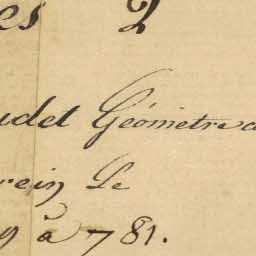 es 2
udet Géometre a
rein Le
9 à 781.